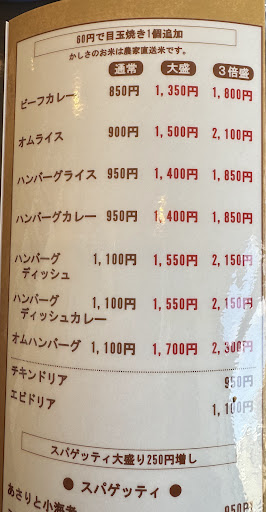 60円で目玉焼き1個追加
かしさのお米は農家直送米です。
通常 大盛 3倍盛
ビーフカレー 850円 1,350円 1,800円
オムライス 900円 1,500円 2,100円
ハンバーグライス 950円 1,400円 1,850円
ハンバーグカレー 950円 1,400円 1,850円
ハンバーグ 1,100円 1,550円 2,150円
ディッシュ
ハンバーグ 1,100円 1,550円 2,150円
ディッシュカレー
オムハンバーグ 1,100円 1,700円 2,300円
チキンドリア 950円
エビドリア 1,100円
スパゲッティ大盛り250円増し
● スパゲッティ ●
あさりと小海老 950円